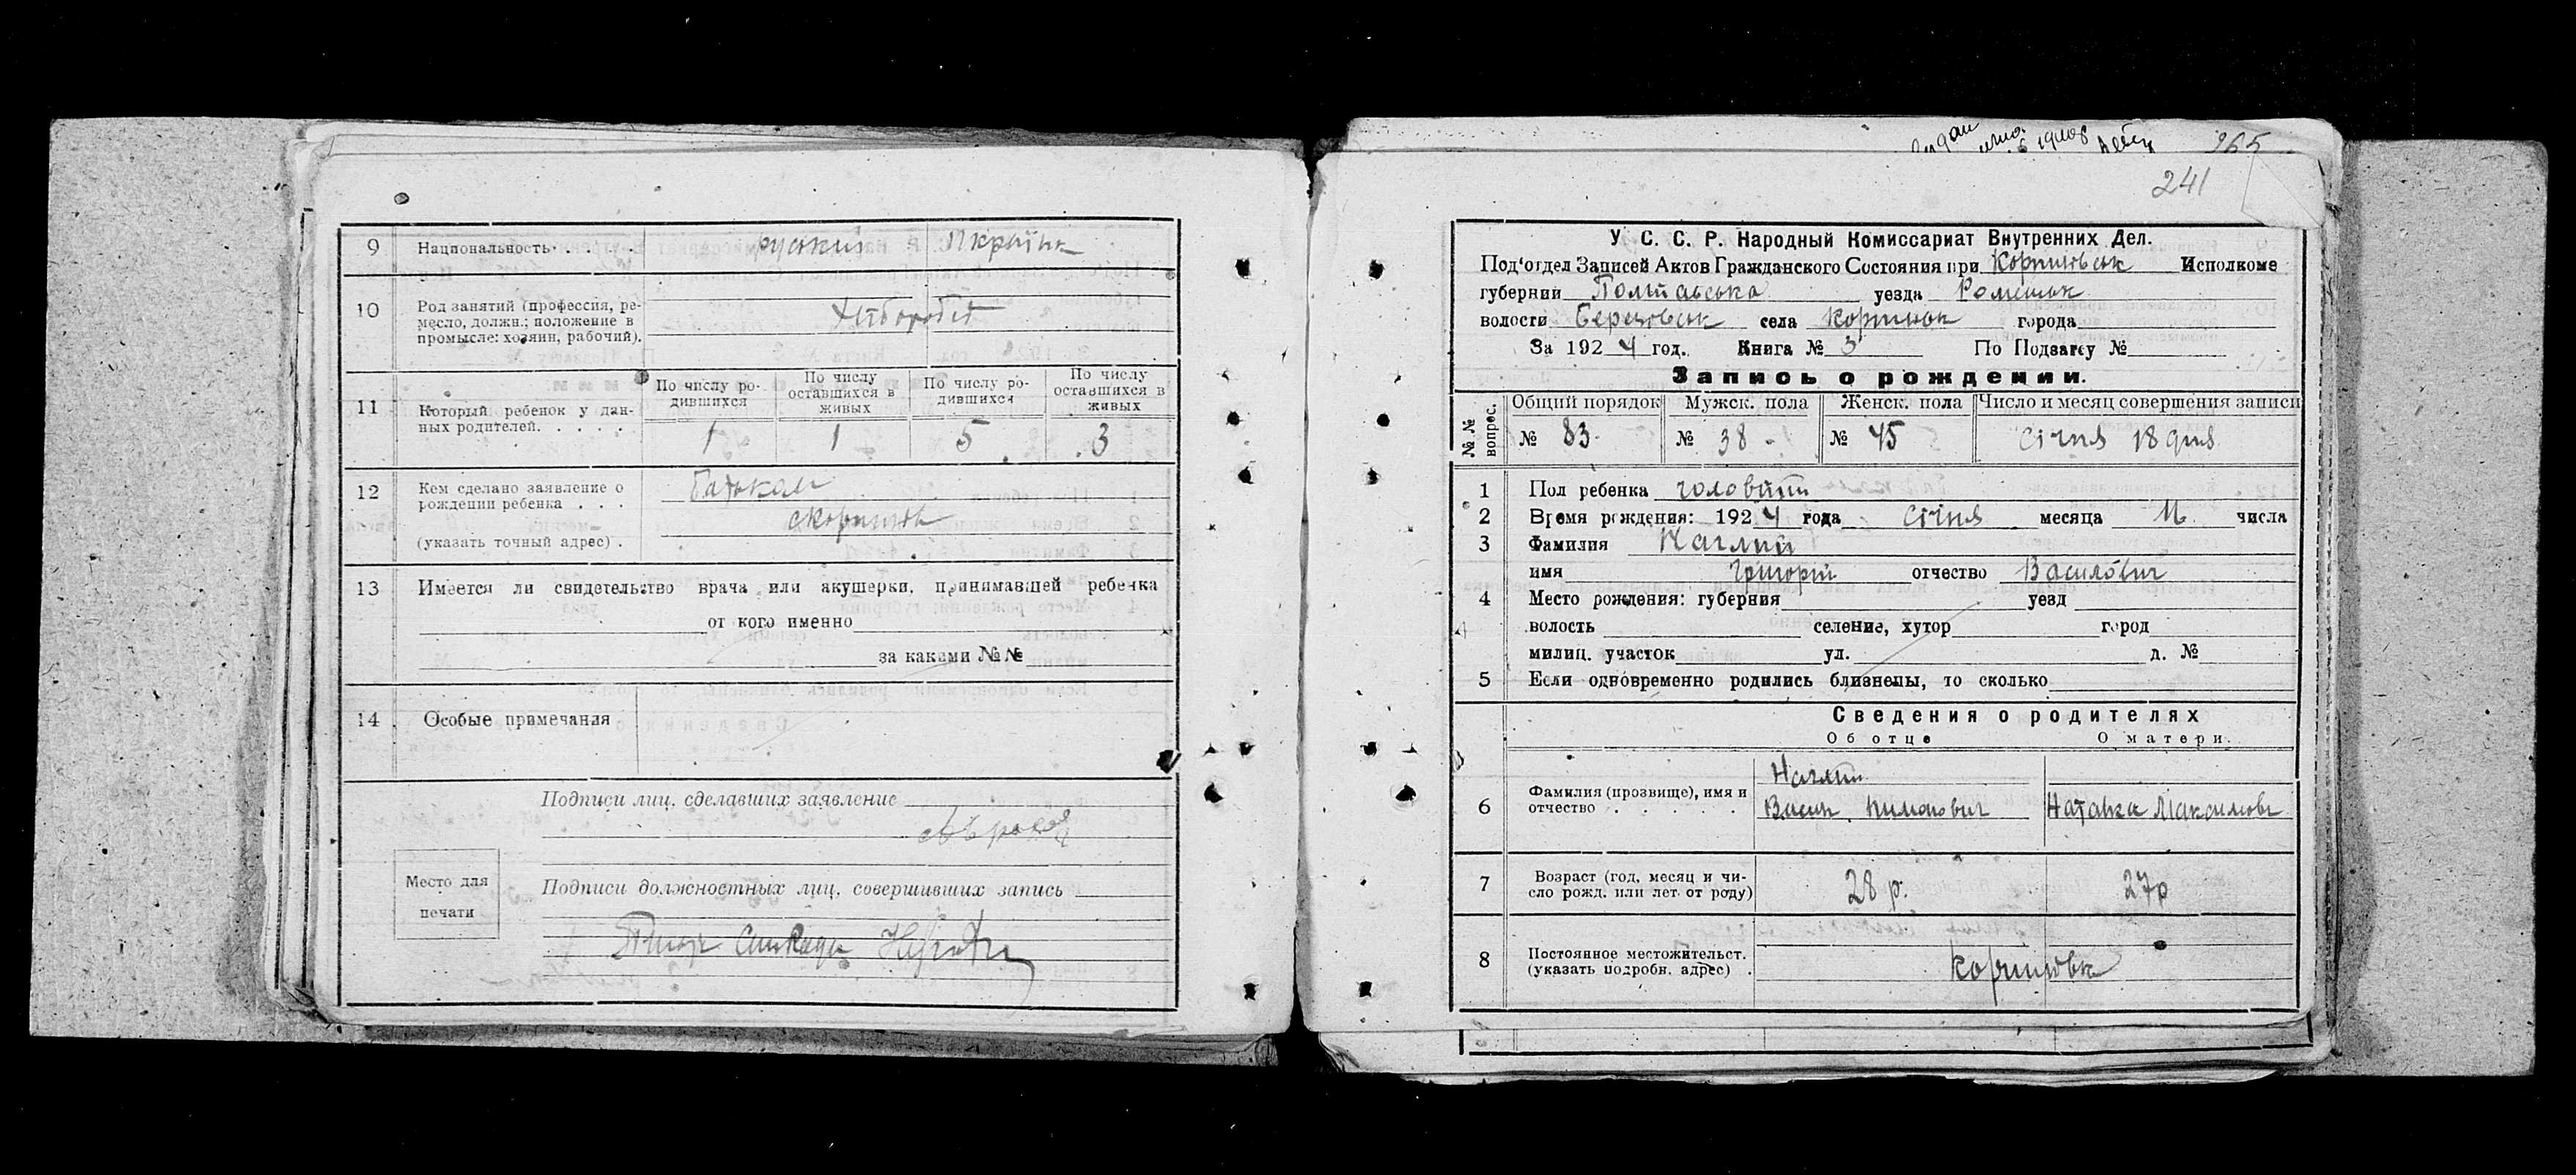 9 Национальность . . . . русский Украінк
10 Род занятий (профессия, ре-
месло, должн.; положение в
промысле: хозяин, рабочий).
Хлібороб
11 Который ребенок у дан-
ных родителей. . . . .
По числу ро-
дившихся
По числу
оставшихся в
живых
По числу ро-
дившихся
По числу
оставшихся в
живых
1 1 5 3
12 Кем сделано заявление о
рождении ребенка . . .
(указать точный адрес) .
Батьком
13 Имеется ли свидетельство врача или акушерки, принимавшей ребенка
от кого именно
за какими №№
14 Особые примечания
Подписи лиц, сделавших заявление
Подписи должностных лиц, совершивших запись
Место для
печати
265
241
У. С. С. Р. Народный Комиссариат Внутренних Дел.
Под'отдел Записей Актов Гражданского Состояния при Исполкоме
губернии Полтавська уезда Роменськ
волости села города
За 1924 год. Книга № 3 По Подзагсу №
Запись о рождении.
№№ вопрос.
Общий порядок Мужск. пола Женск. пола Число и месяц совершения записи
№ 83 № 38 № 45 Січня 18 дня
1 Пол ребенка
2 Время рождения: 1924 года січня месяца числа
3 Фамилия
имя Григорій отчество Василович
4 Место рождения: губерния уезд
волость селение, хутор город
милиц. участок ул. д. №
5 Если одновременно родились близнецы, то сколько
Сведения о родителях
Об отце О матери.
6 Фамилия (прозвище), имя и
отчество . . . . . .
Наталка Максимовн
7 Возраст (год, месяц и чи-
сло рожд. или лет от роду)
28 р. 27 р
8 Постоянное местожительст.
(указать подробн. адрес) .